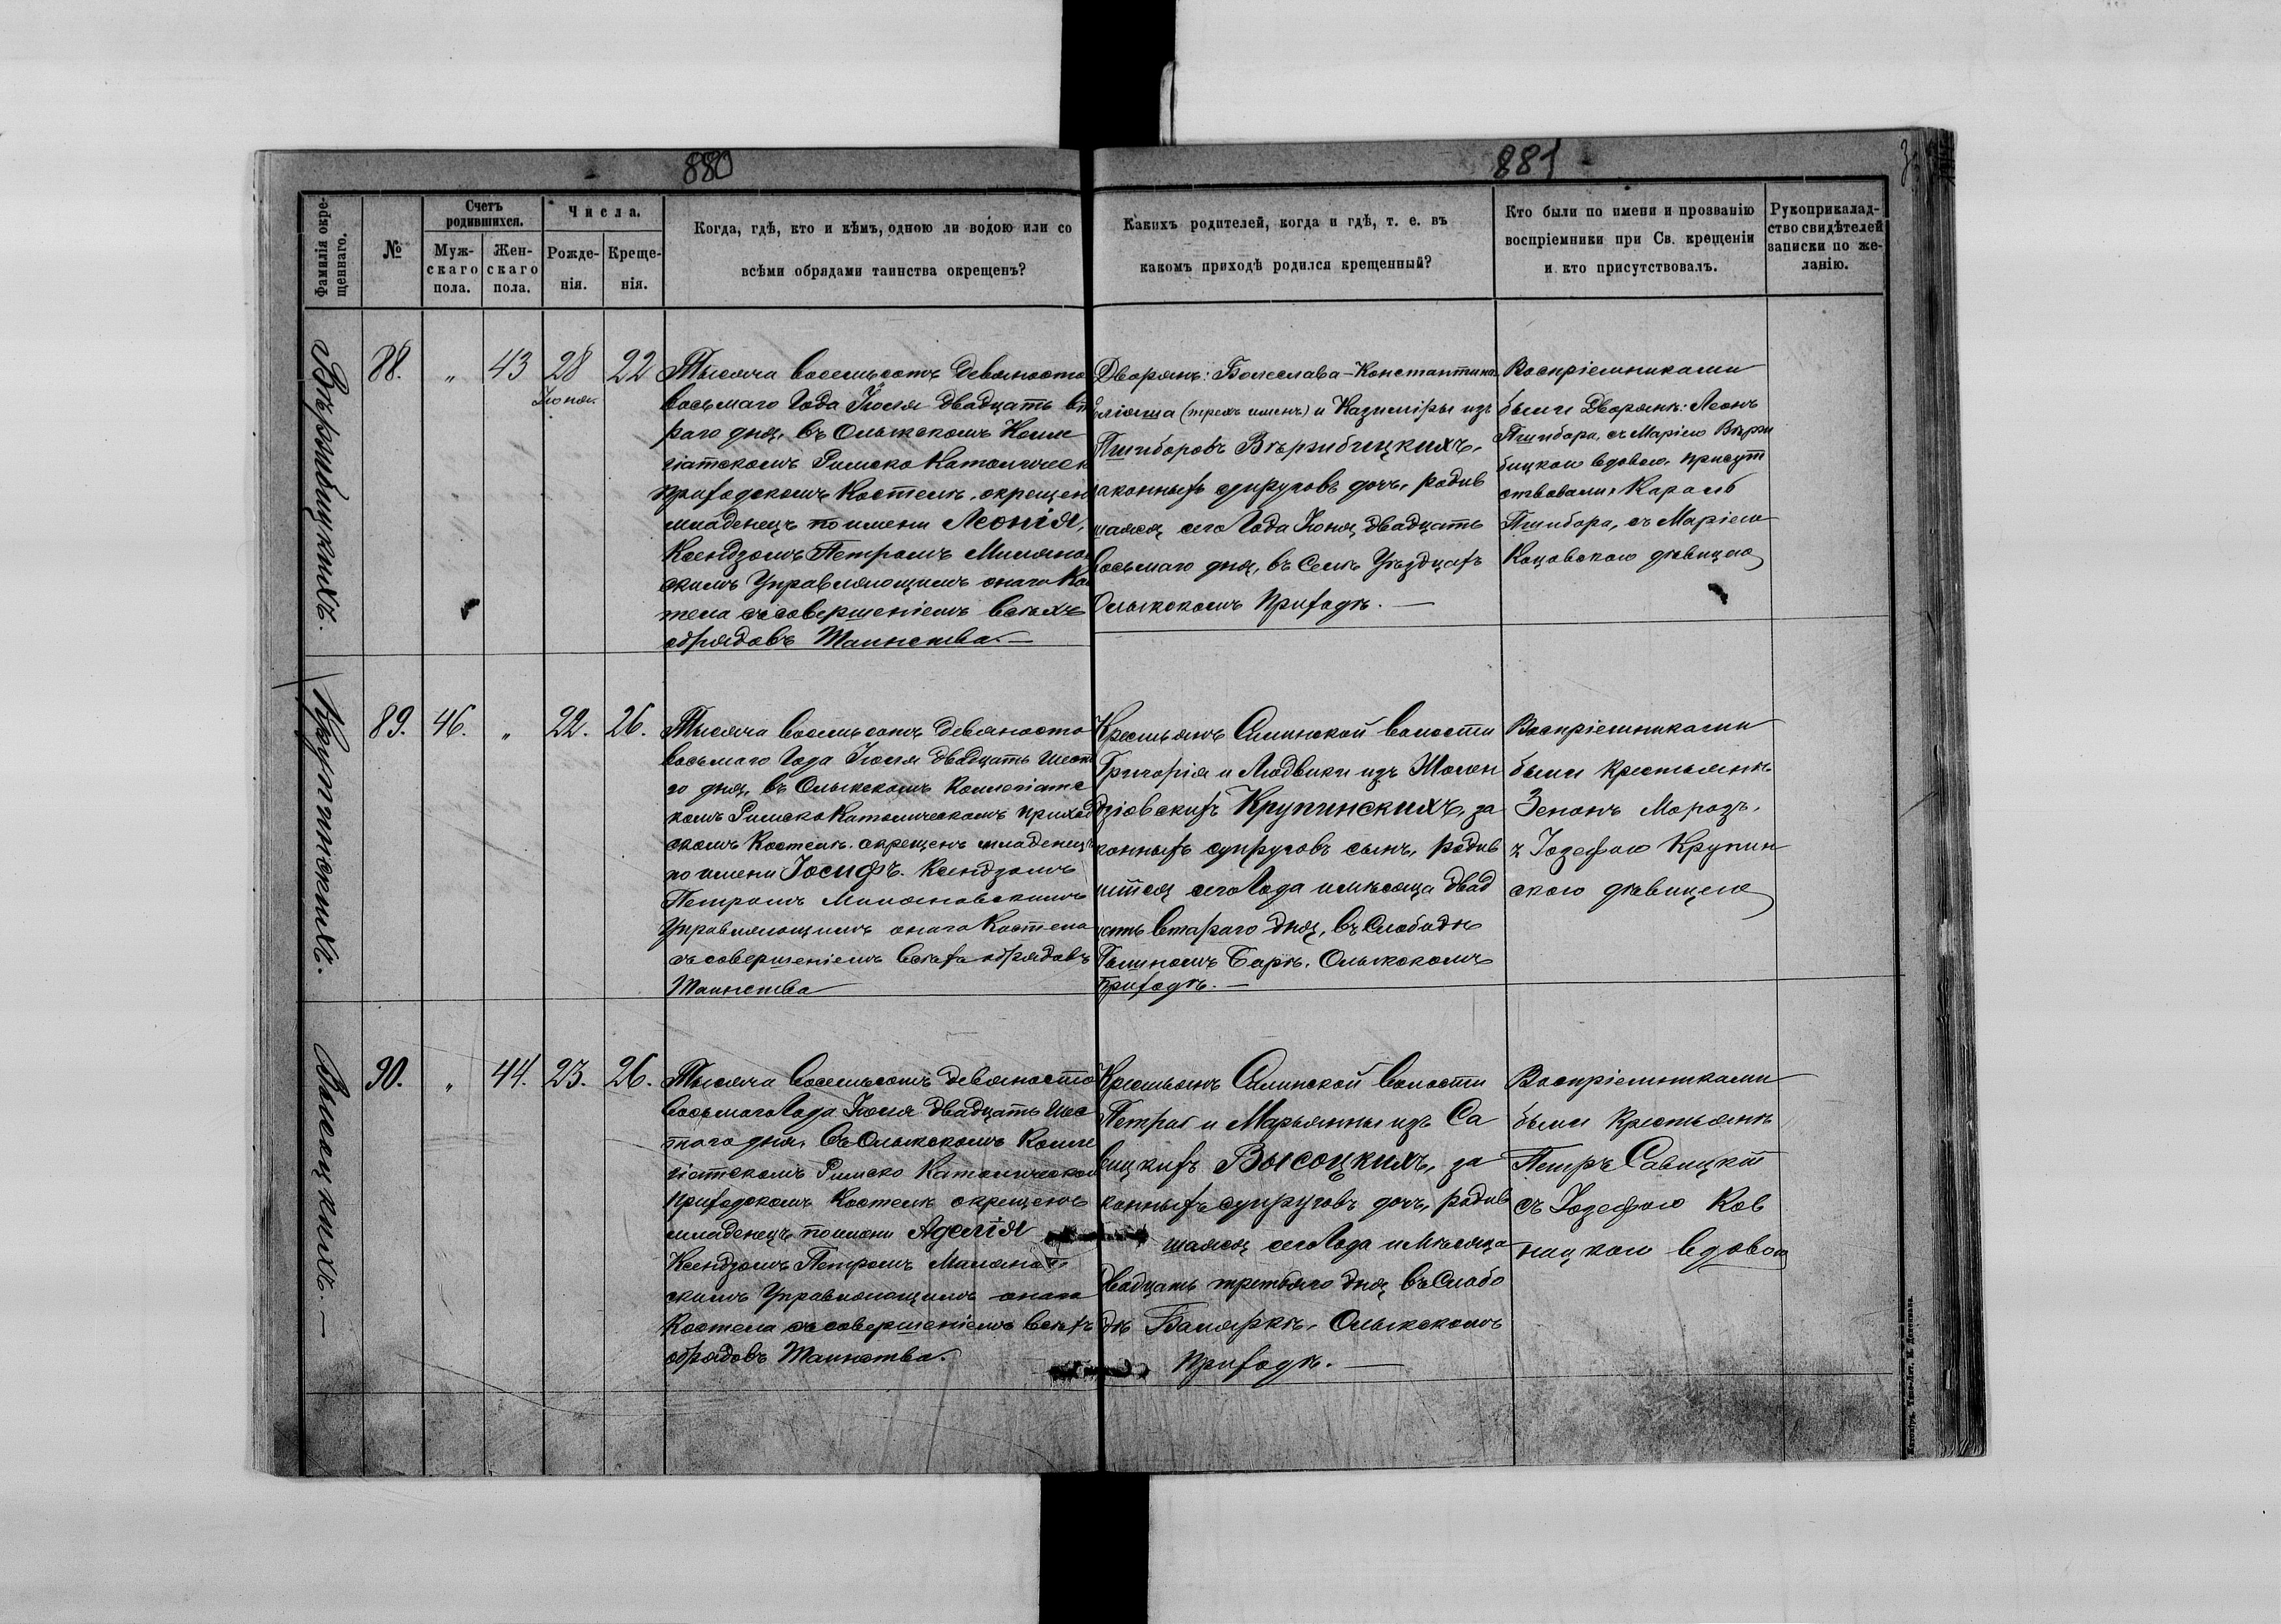 880
881
Фамилія окре-
щеннаго.
№
Счетъ
родившихся.
Муж-
скаго
пола.
Жен-
скаго
пола.
Числа.
Рожде-
нія.
Креще-
нія.
Когда, гдѣ, кто и кѣмъ, одною ли водою или со
всѣми обрядами таинства окрещенъ?
Какихъ родителей, когда и гдѣ, т. е. въ
какомъ приходѣ родился крещенный?
Кто были по имени и прозванію
воспріемники при Св. крещеніи
и кто присутствовалъ.
Рукоприкалад-
ство свидѣтелей
записки по же-
ланію.
Вѣржибицкихъ.
88.
"
43
28
Іюня
22
Тысяча восемьсотъ девяносто
восьмаго Года Іюля двадцать вто
раго дня, въ Олыкскомъ Колле
гіатскомъ Римско Католическ
приходскомъ Костелѣ, окрещен
младенецъ по имени Леонія,
Ксендзомъ Петромъ Миланов
скимъ Управляющимъ онаго Кос
тела съ совершеніемъ всѣхъ
обрядовъ Таинства.—
Дворянъ: Болеслава-Константина
(трехъ именъ) и Казиміры изъ
Пшиборовъ Вѣржибицкихъ,
законныхъ супруговъ дочь, родив
шаяся сего Года Іюня двадцать
восьмаго дня, въ Селѣ Уѣздцахъ
Олыкскомъ Приходѣ.—
Воспріемниками
были Дворяне: Леонъ
Пшибора, съ Маріею Вѣржи
бицкою вдовою, присут
ствовали Кароль
Пшибора, съ Маріею
Коцовскою дѣвицею
Крупинскихъ.
89.
46.
"
22.
26.
Тысяча восемьсотъ девяносто
восьмаго Года Іюля двадцать шеста
го дня, въ Олыкскомъ Коллегіатс
комъ Римско Католическомъ Приход
скомъ Костелѣ, окрещенъ младенецъ
по имени Іосифъ. Ксендзомъ
Петромъ Милановскимъ
Управляющимъ онаго Костела
съ совершеніемъ всѣхъ обрядовъ
Таинства
Крестьянъ Силинской волости
Григорія и Людвики изъ Шолон
дзіовскихъ Крупинскихъ, за
конныхъ супруговъ сынъ, родив
шійся сего Года и мѣсяца двад
цать втораго дня, въ Слободѣ
Олыкскомъ
Приходѣ.—
Воспріемниками
были Крестьяне
Зенонъ Морозъ,
съ Іозефою Крупин
скою дѣвицею
Высоцкихъ.—
90.
"
44.
23.
26.
Тысяча восемьсотъ девяносто
восьмаго Года Іюля двадцать шес
таго дня, въ Олыкскомъ Колле
гіатскомъ Римско Католическом
Приходскомъ Костелѣ окрещенъ
младенецъ по имени Аделія
Ксендзомъ Петромъ Миланов
скимъ Управляющимъ онаго
Костела съ совершеніемъ всѣхъ
обрядовъ Таинства.
Крестьянъ Силинской волости
Петра и Марьянны изъ Са
вицкихъ Высоцкихъ, за
конныхъ супруговъ дочь, родив
шаяся сего Года и Мѣсяца
двадцать третьяго дня, въ Слобо
дѣ Балярнѣ, Олыкскомъ
Приходѣ.—
Воспріемниками
были Крестьяне
Петръ Савицкій
съ Іозефою Ков
ницкою вдовою